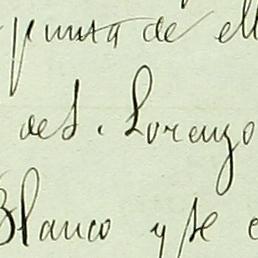 punta de ell
de S. Lorenzo
Blanco y se